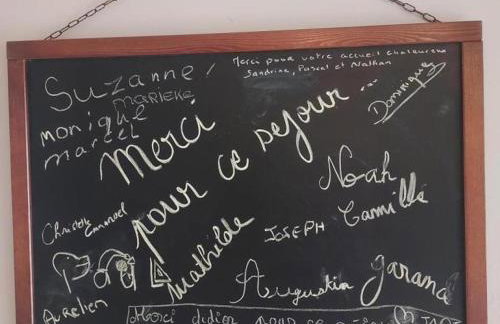 Suzanne!
Merci pour votre accueil chaleureux
Sandrine, Pascal et Nathan
Marieke
Dominique
monique
marcel
Merci
pour ce sejour...
Noah
Camille
JOSEPH
Christelle Emmanuel
Paul
mathilde
Augustin
garance
Aurelien
Merci didier